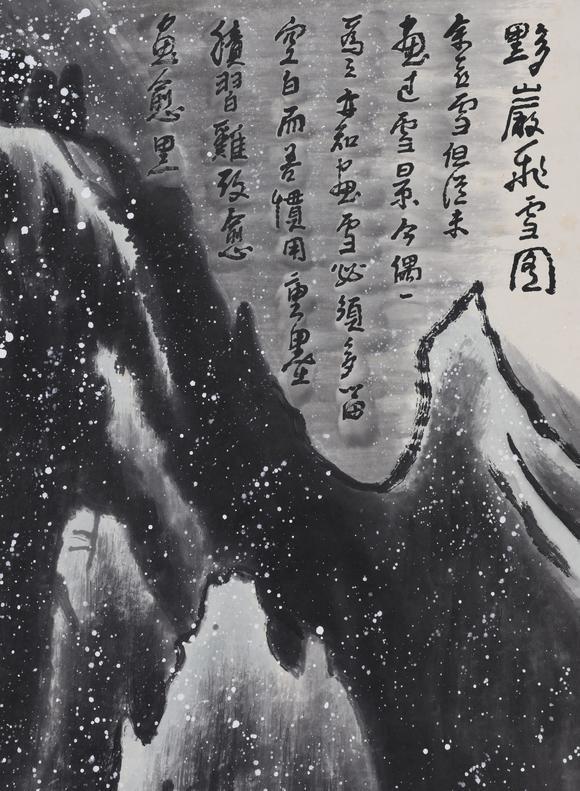 黟巖飛雪图
余爱雪但從未
畫过雪景今偶一
為之亦知畫雪必須多留
空白而吾慣用重墨
積習難改愈
畫愈黑